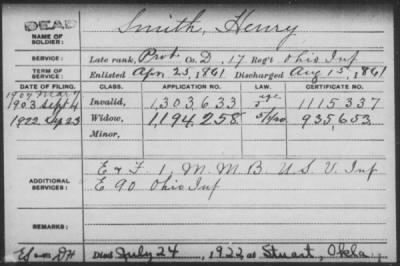 DEAD
NAME OF SOLDIER: Smith, Henry
SERVICE: Late rank, Prvt Co. D, 17 Reg't Ohio Inf
TERM OF SERVICE: Enlisted Apr 23, 1861 Discharged Aug 15, 1861
DATE OF FILING. CLASS. APPLICATION NO. LAW. CERTIFICATE NO.
1907 Mar 7 age
1903 Sept 4 Invalid, 1,303,633 1115337
1922 Sep 23 Widow, 1194258 935,653
Minor,
ADDITIONAL SERVICES: E & F. 1, M. M. B. U. S. V. Inf
E 90 Ohio Inf
REMARKS:
Died July 24, 1922, at Stuart, Okla